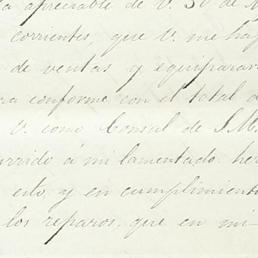 a apreciable de V. 30 de M
corrientes, que V. me ha
de ventas y equipara
ra conforme con el total d
V. como Consul de S. M.
urrido á mi lamentado her
esto y en cumplimient
los reparos, que en mi